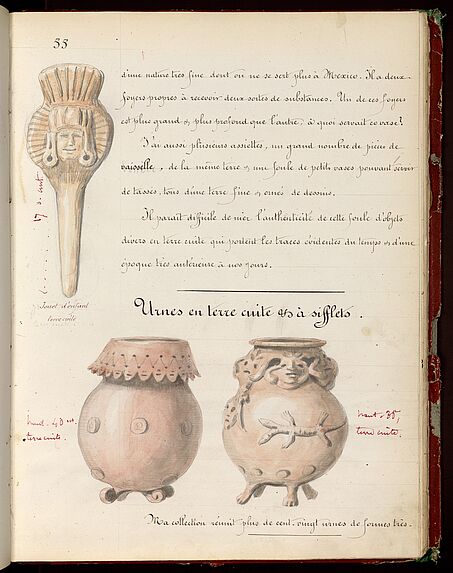 33
d'une nature très fine dont on ne se sert plus à Mexico. Il a deux
foyers propres à recevoir deux sortes de substances. Un de ces foyers
est plus grand & plus profond que l'autre, à quoi servait ce vase?
J'ai aussi plusieurs assiettes, un grand nombre de pièces de
vaisselle, de la même terre & une foule de petits vases pouvant servir
de tasses, tous d'une terre fine & ornés de dessins.
Il paraît difficile de nier l'authenticité de cette foule d'objets
divers en terre cuite qui portent les traces évidentes du temps & d'une
époque très antérieure à nos jours.
17 c. haut
Jouet d'enfant
terre cuite
Urnes en terre cuite & à sifflets.
haut.
terre cuite.
haut. 38c
terre cuite.
Ma collection réunit plus de cent-vingt urnes de formes très-